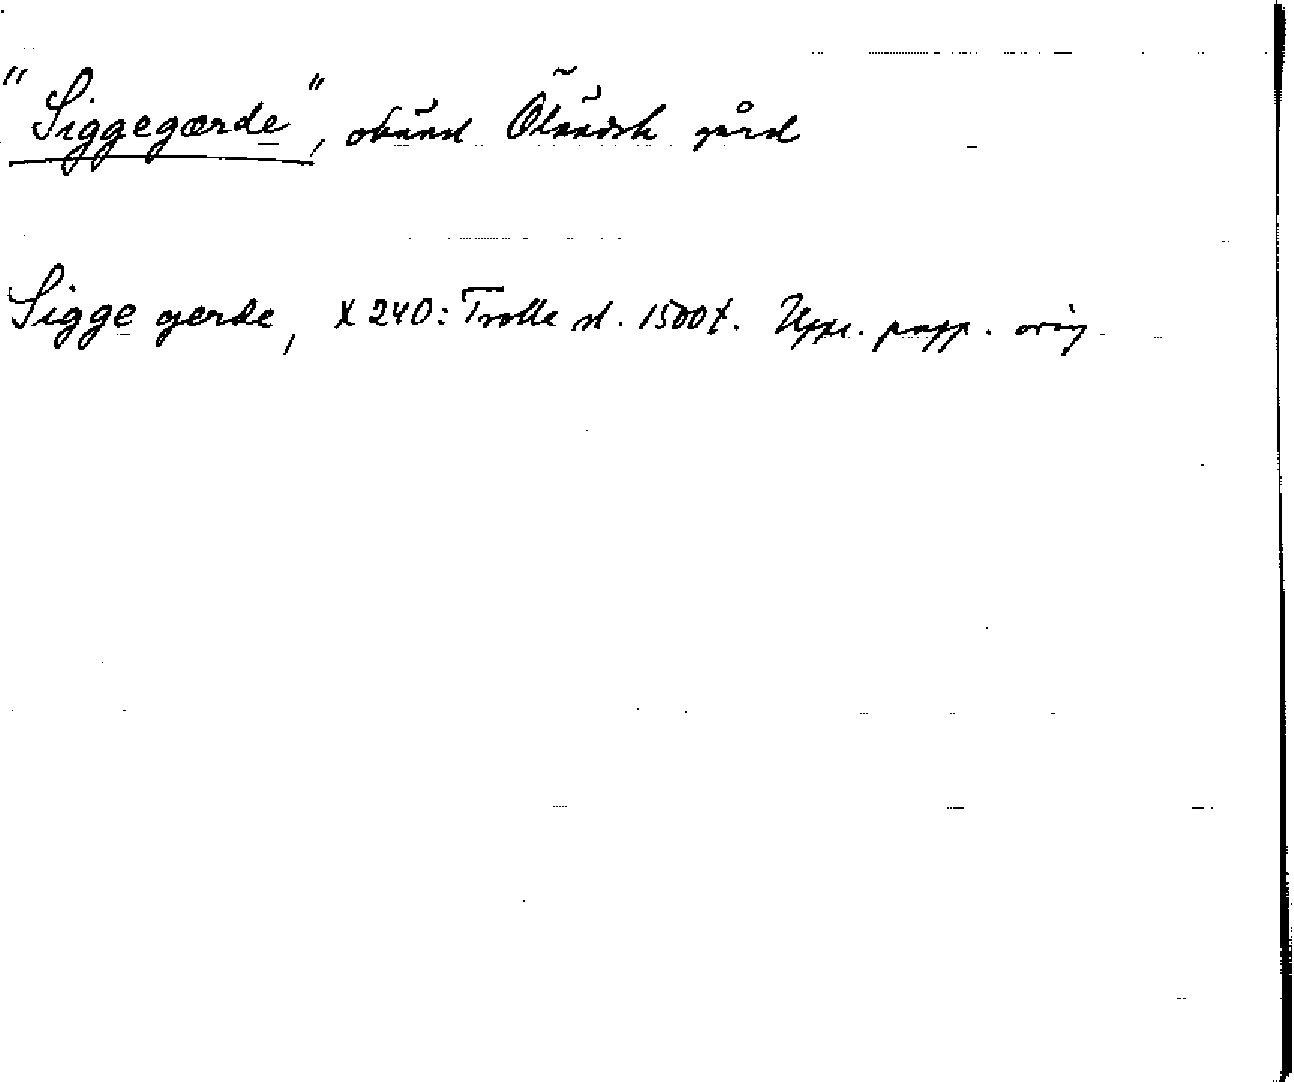 "Siggegærde", okänd Öländsk gård
Sigge gerde, X 240: Trolle sl. 1500t. Upps. papp. orig.